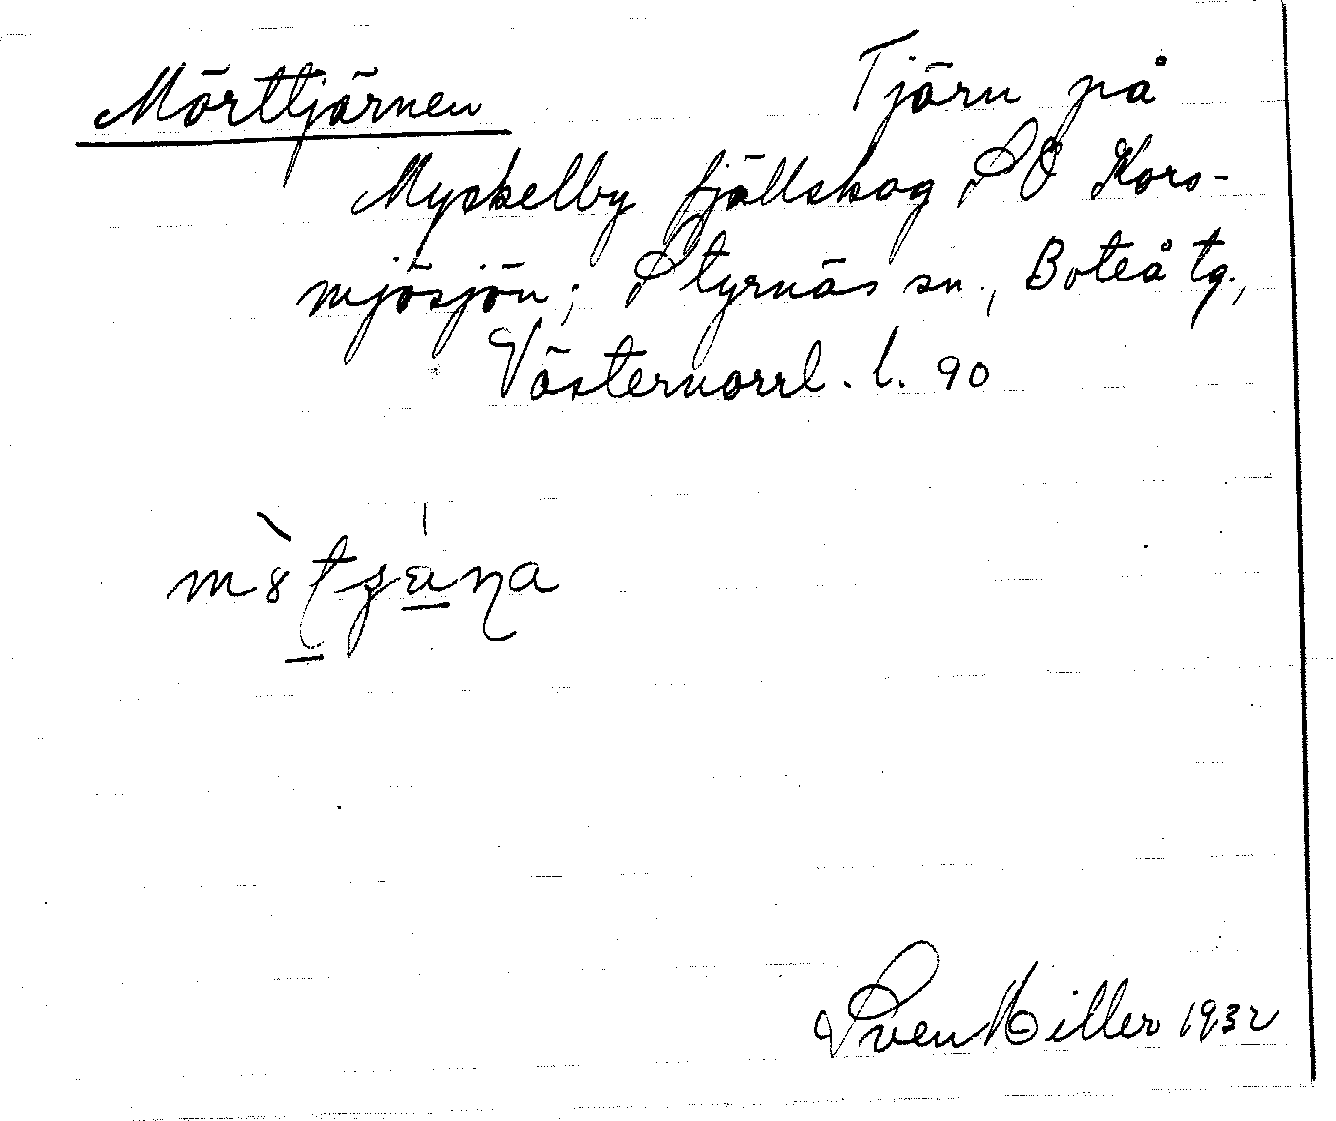 Mörttjärnen Tjärn på
Myckelby fjällskog SO Kors-
mjösjön; Styrnäs sn., Boteå tg.,
Västernorrl. l. 90
Sven Hiller 1932